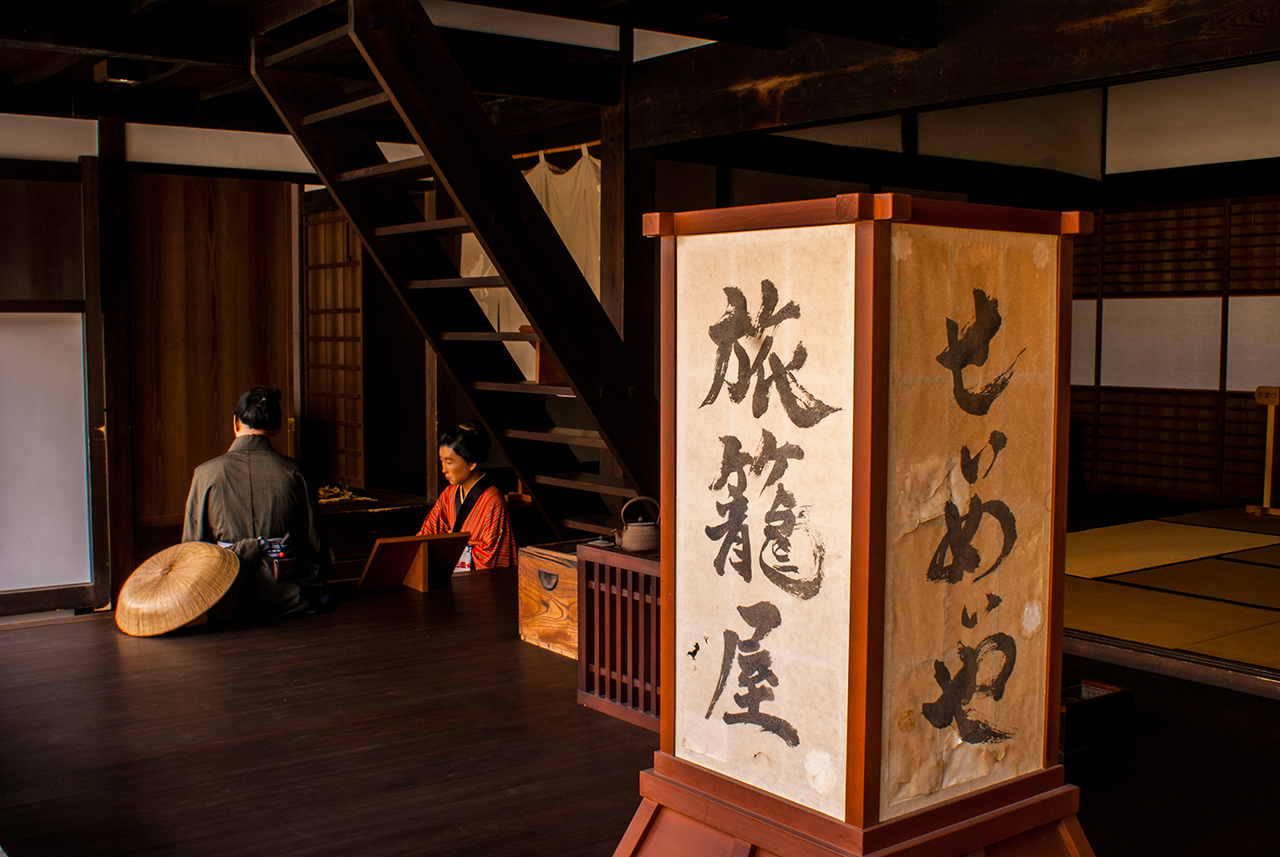 旅籠屋
せいめいや